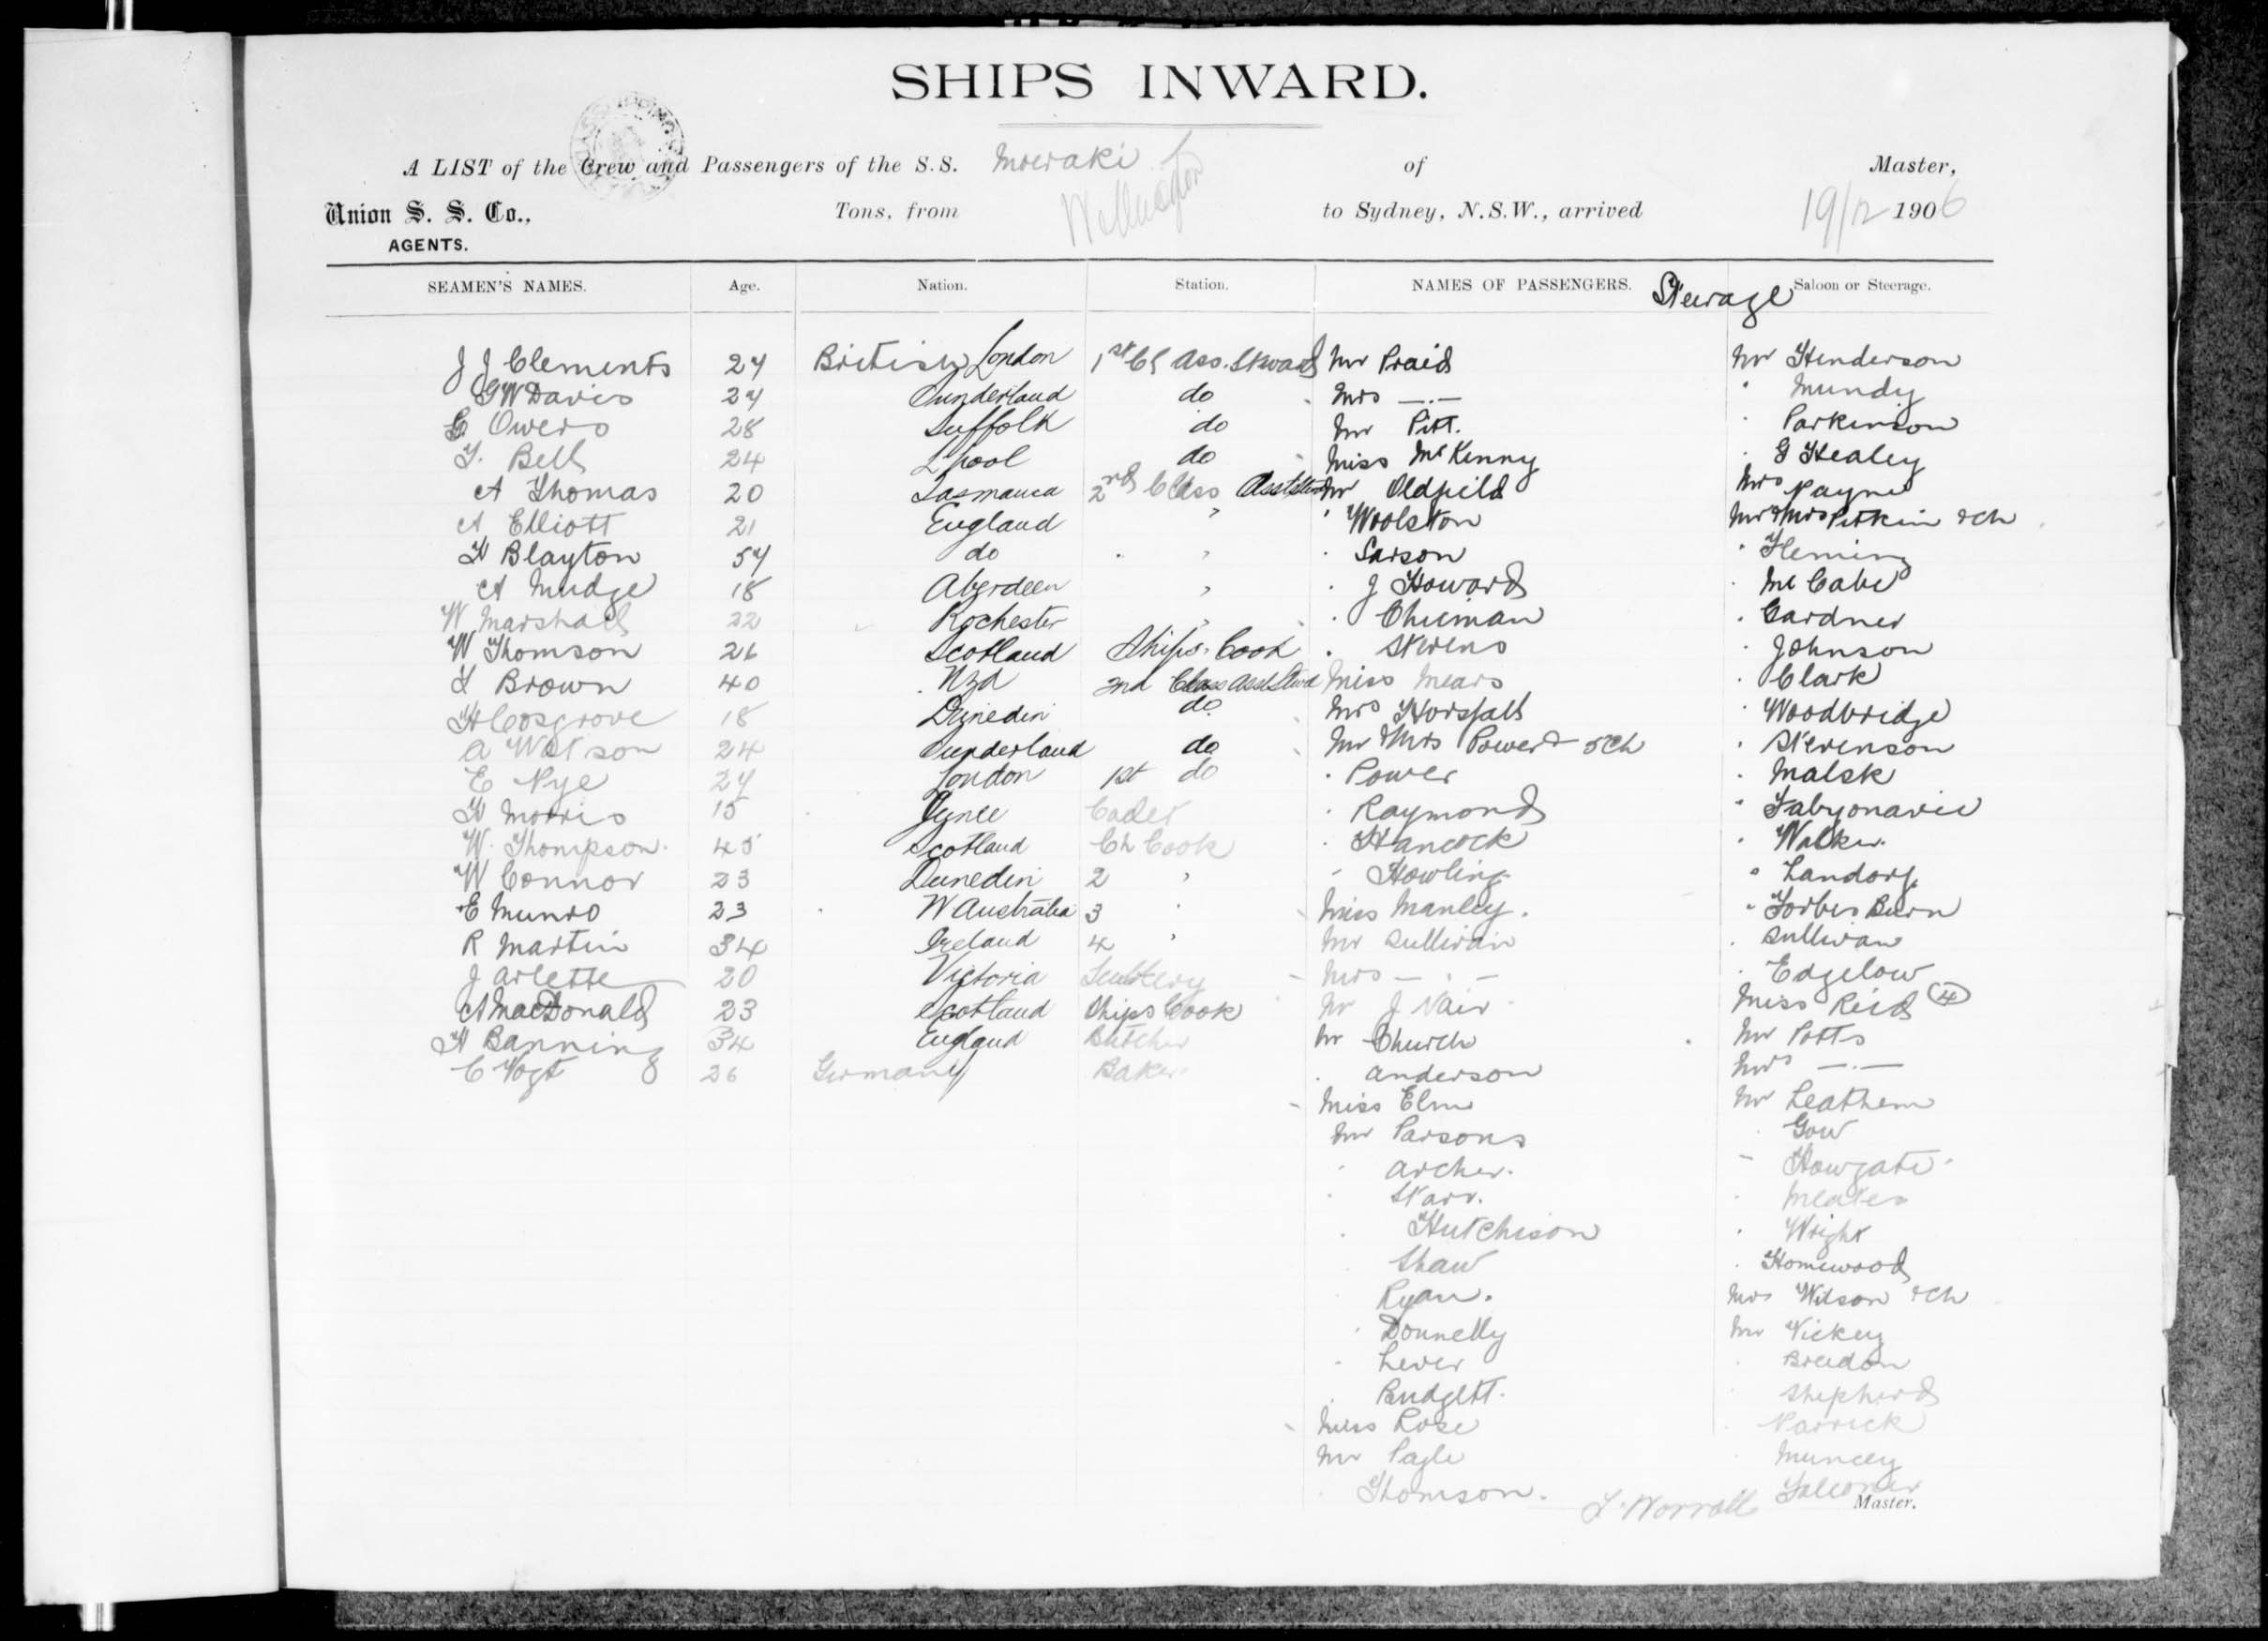 SHIPS INWARD.
A LIST of the Crew and Passengers of the S.S. Moeraki of Master,
Union S. S. Co., Tons, from Wellington to Sydney, N.S.W., arrived 19/12 1906
AGENTS.
SEAMEN'S NAMES. Age. Nation. Station. NAMES OF PASSENGERS. Steerage Saloon or Steerage.
J J Clements 24 British London 1st Cl Ass. Steward Mr Praid Mr Henderson
G W Davis 24 Sunderland do Mrs —.— " Mundy
G Owers 28 Suffolk do Mr Pitt. " Parkinson
T. Bell 24 L'pool do Miss McKenny " G Healey
A Thomas 20 Tasmania 2nd Class Asst Stwd Mr Oldfield Mrs Payne
A Elliott 21 England " ' Woolston Mr & Mrs Pitkin & ch
H Blayton 54 do " " Sarson " Fleming
A Mudge 18 Aberdeen " " J Howard " McCabe
W Marshall 22 Rochester " " Chieman " Gardner
W Thomson 26 Scotland Ships Cook " Stevens " Johnson
T Brown 40 Nzd 2nd Class Asst Stwd Miss Mears " Clark
H Cosgrove 18 Dunedin do Mrs Horsfall " Woodbridge
A Watson 24 Sunderland do Mr & Mrs Power & 5 ch " Stevenson
E Nye 24 London 1st do " Power " Malsk
H Morris 15 Cadet " Raymond
W. Thompson. 45 Scotland Ch Cook " Hancock " Walker.
W Connor 23 Dunedin 2 " " Howling
E Munro 23 W Australia 3 " Miss Manley. " Forbes Burn
R Martin 34 Ireland 4 " Mr Sullivan " Sullivan
J Arlette 20 Victoria Scullery Mrs — . — " Edgelow
A MacDonald 23 Scotland Ships Cook Mr J Nair Miss Reid (4)
H Banning 34 England Butcher Mr Church Mr Potts
C Vogt 26 Germany Baker " Anderson Mrs —.—
Miss Elm Mr Leathem
Mr Parsons " Gow
" Archer. " Howgate
" Starr. " Meates
" Hutchison " Wright
" Shaw " Homewood
" Ryan. Mrs Wilson & ch
" Donnelly Mr Vickery
" Lever " Breedon
" Budgett. " Shepherd
Miss Rose
Mr Pagle " Muncey
" Thomson. " Falconer
Worrall Master.